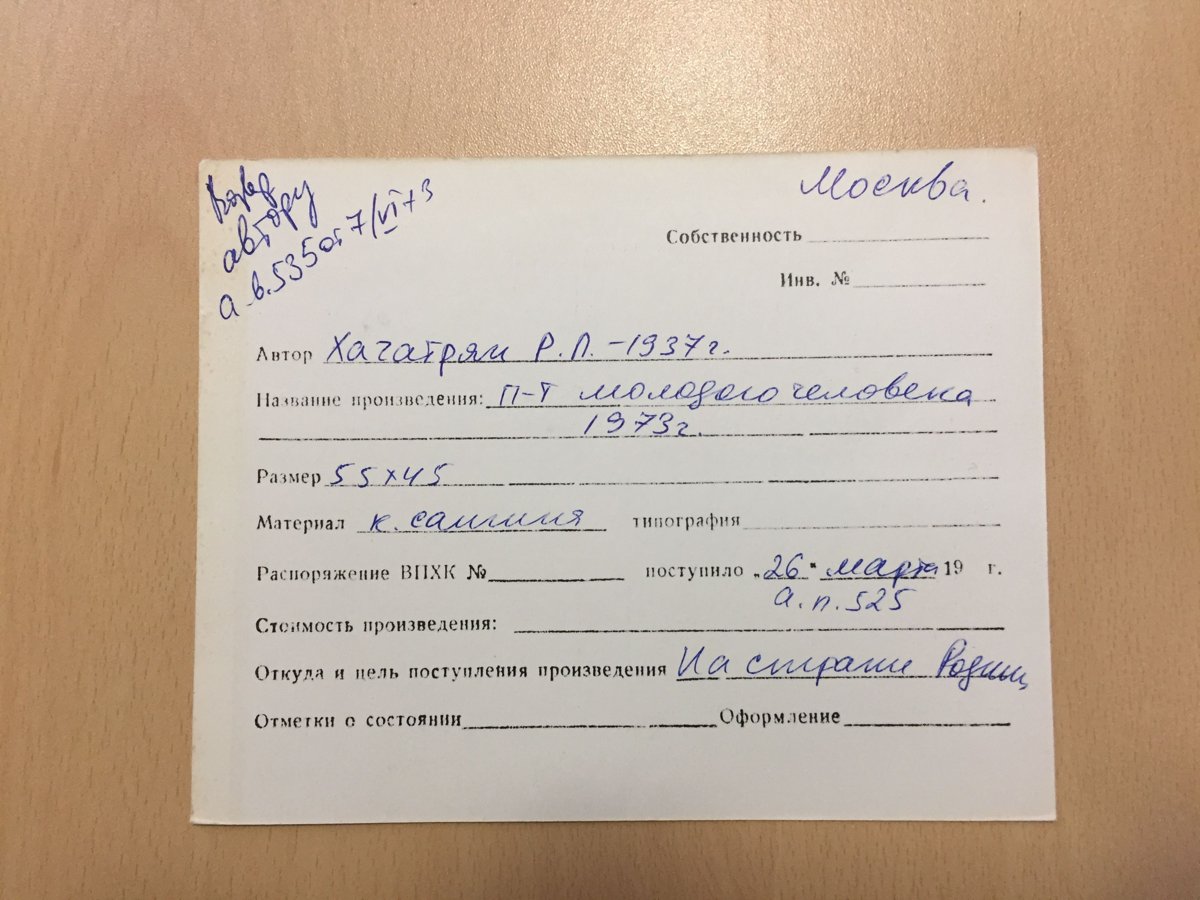 Возвр
автору
а.в.535от 7/VI 73
Москва.
Собственность
Инв. №
Автор Хачатрян Р.Л. -1937г.
Название произведения: П-т молодого человека
1973г.
Размер 55х45
Материал к. сангиня типография
Распоряжение ВПХК № поступило „26" марта 19 г.
а.п.525
Стоимость произведения:
Откуда и цель поступления произведения На страже Родины
Отметки о состоянии Оформление